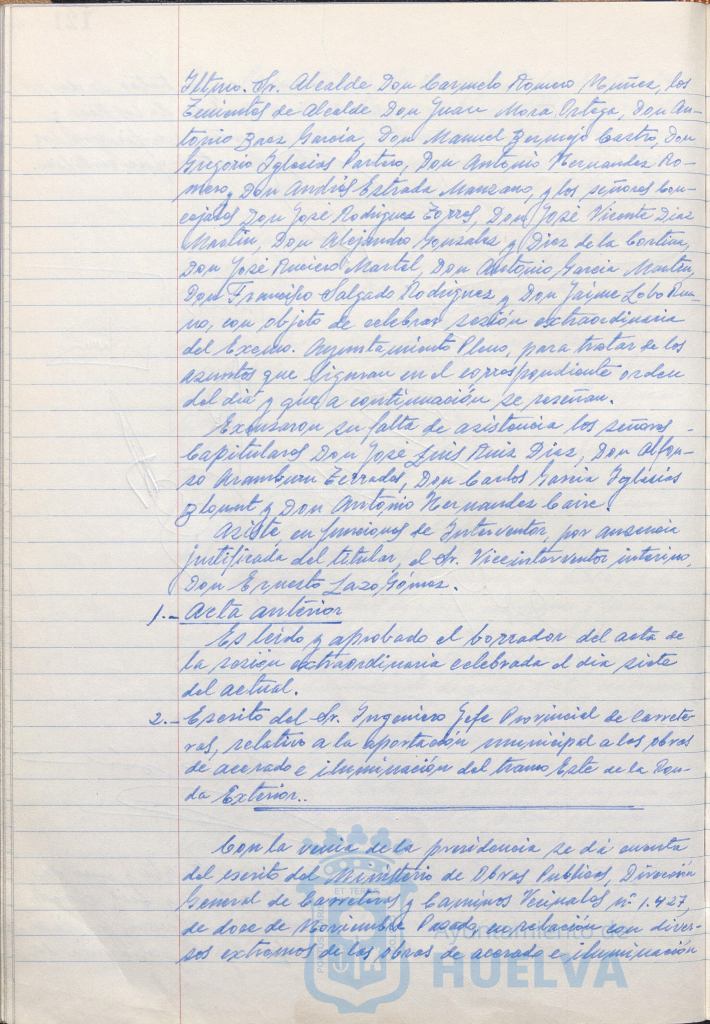 Iltmo. Sr. Alcalde Don Carmelo Romero Núñez, los
Tenientes de Alcalde Don Juan Mora Ortega, Don An-
tonio Baez García, Don Manuel Bermejo Castro, Don
Gregorio Iglesias Don Antonio Hernandez Ro-
mero, Don Andrés Estrada Manzano, y los señores Con-
cejales Don José Rodriguez Torres, Don José Vicente Diaz
Martin, Don Alejandro Gonzalez y Diez de la Cortina,
Don José Martel, Don Antonio Garcia Martin,
Don Francisco Salgado Rodriguez y Don Jaime Lobo
con objeto de celebrar sesión extraordinaria
del Excmo. Ayuntamiento Pleno, para tratar de los
asuntos que figuran en el correspondiente orden
del dia y que a continuación se reseñan.
Excusaron su falta de asistencia los señores
Capitulares Don José Luis Ruiz Diaz, Don Alfon-
so Aramburu Terrades, Don Carlos Garcia Iglesias
Blount y Don Antonio Hernandez
Asiste, en funciones de Interventor, por ausencia
justificada del titular, el Sr. Viceinterventor interino,
Don Ernesto Lazo Gómez.
1.- Acta anterior
Es leido y aprobado el borrador del acta de
la sesión extraordinaria celebrada el dia siete
del actual.
2.- Escrito del Sr. Ingeniero Jefe Provincial de Carrete-
ras, relativo a la aportación municipal a las obras
de acerado e iluminación del tramo Este de la Ron-
da Exterior..
Con la venia de la presidencia se dá cuenta
del escrito del Ministerio de Obras Publicas, Dirección
General de Carreteras y Caminos Vecinales nº 1.427,
de doce de Noviembre Pasado, en relación con diver-
sos extremos de las obras de acerado e iluminación
Ayuntamiento de
HUELVA